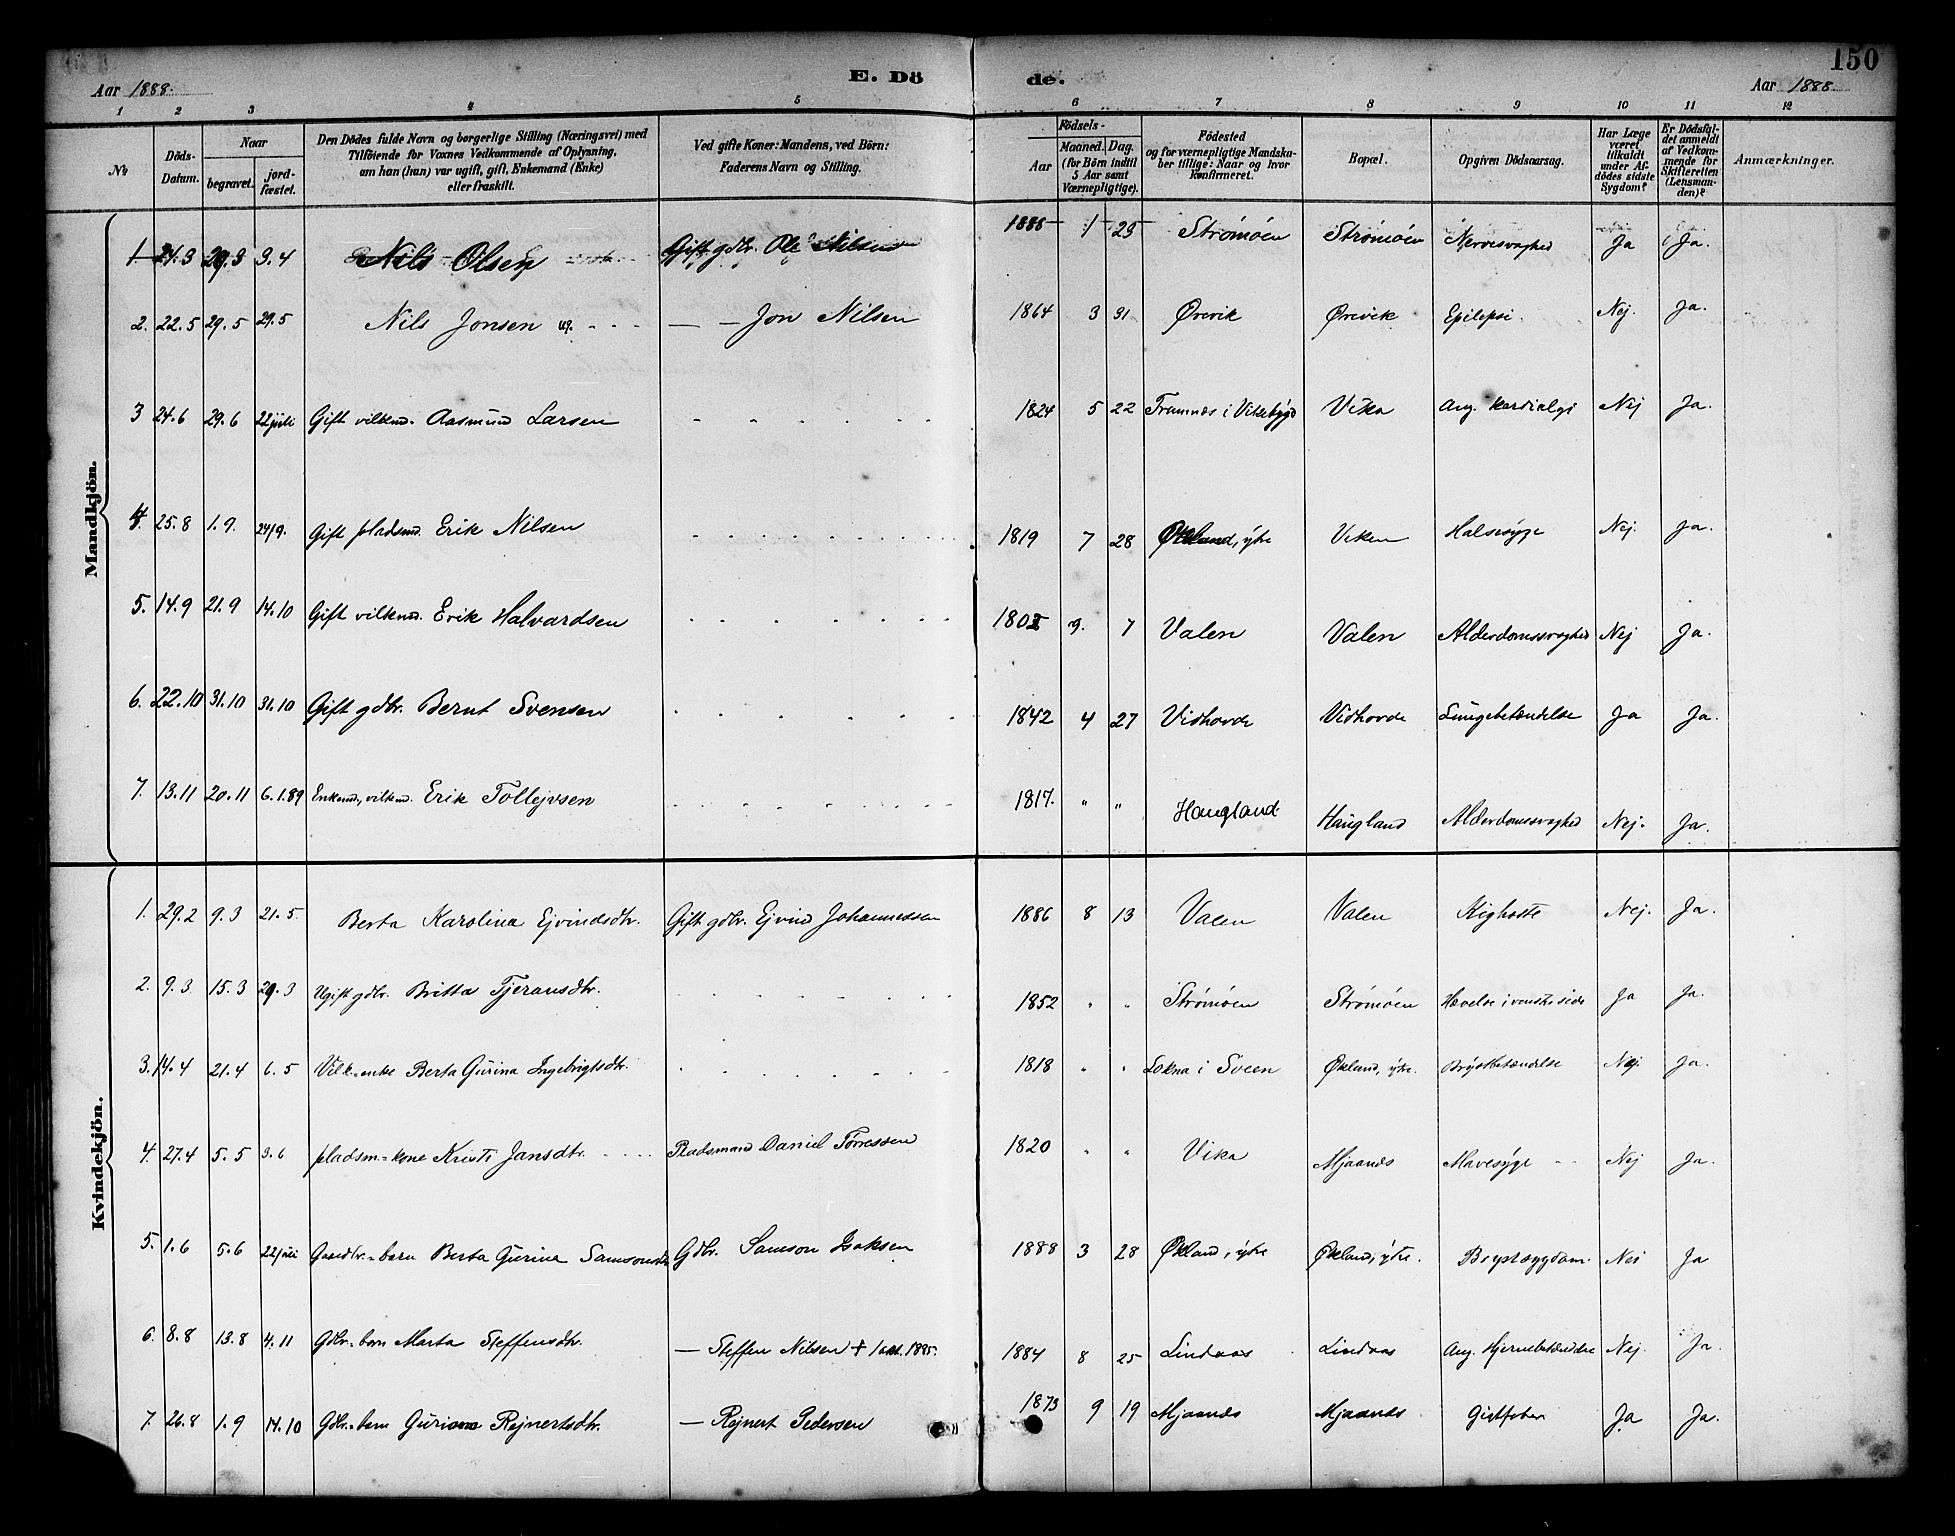 150
Aar 1888. E. Dö de. Aar 1888.
1 2 3 4 5 6 7 8 9 10 11 12
№ Döds-Datum. Naar begravet. jord-fæstet. Den Dödes fulde Navn og borgerlige Stilling (Næringsvei) med Tilföiende for Voxnes Vedkommende af Oplysning, om han (hun) var ugift, gift, Enkemand (Enke) eller fraskilt. Ved gifte Koner: Mandens, ved Börn: Faderens Navn og Stilling. Födsels- Aar Maaned. Dag. (for Börn indtil 5 Aar samt Værnepligtige). Födested og for værnepligtige Mandska-ber tillige: Naar og hvor Konfirmeret. Bopæl. Opgiven Dödsaarsag. Har Læge været tilkaldt under Af-dödes sidste Sygdom? Er Dödsfal-det anmeldt af Vedkom-mende for Skifteretten (Lensman-den)? Anmærkninger.
Mandkjön.
1. 21.3 29.3 3.4 Nils Olsen Gift gdbr. Ole Nilsen 1 23 Strømøen Strømøen Nervesvaghed Ja Ja.
2. 22.5 29.5 29.5 Nils Jonsen ug. - - - — — Jon Nilsen 1864 3 31 Ørevik Ørevik Epilepsi. Nej. Ja.
3 24.6 29.6 22 juli Gift vilkmd. Aasmund Larsen 1824 5 22 Framnæs i Vikebygd Vika Ang. Kardialgi Nej Ja.
4. 25.8 1.9. 24/9. Gift pladsmd. Erik Nilsen 1819 7 28 Økland, ytre Viken Halssyge Nej. Ja.
5. 14.9 21.9 14.10 Gift vilkmd. Erik Halvardsen 9. 7 Valen Valen Alderdomssvaghed Nej Ja.
6. 22.10 31.10 31.10 Gift gdbr. Bernt Svensen 1842 4 27 Vidhovde Vidhovde Lungebetændelse Ja Ja.
7. 13.11 20.11 6.1.89 Enkemd., vilkmd. Erik Tollejvsen 1817. " " Haugland. Haugland Alderdomssvaghed Nej. Ja.
Kvindekjön.
1. 29.2 9.3 21.5. Berta Karolina Ejvindsdtr. Gift gdbr. Ejvind Johannessen 1886 8 13 Valen Valen Kighoste Nej. Ja.
2. 9.3. 15.3 29.3 Ugift gdbr. Britta Tjeransdtr. 1852 " " Strømøen Strømøen Hævelse i venstre side Ja Ja.
3. 14.4 21.4 6.5 Vilk-enke Berta Gurina Ingebrigtsdtr. 1818 " " Lokna i Sveen Økland, ytre. Brystbetændelse Nej. Ja.
4. 27.4 5.5 3.6 pladsm.=kone Kristi Jansdtr. - - - - Pladsmand Daniel Tørressen 1820 " " Vika Mjaanes Mavesyge - - Nej Ja.
5. 1.6 5.6 22 juli Gaardbr.=barn Berta Gurina Samsonsdtr Gdbr. Samson Isaksen 1888 3 28 Økland, ytre Økland, ytre. Brystsygdom. Nei Ja
6. 8.8 13.8 4.11 Gdbr.=barn Marta Steffensdtr. — Steffen Nilsen + 1 okt. 1895. 1884 8 25 Lindaas Lindaas Ang. Hjernebetændelse Nej. Ja.
7. 26.8 1.9 14.10 Gdbr.=barn Guriana Rejnertsdtr. — Rejnert Pedersen 1873 9 19 Mjaanes Mjaanes Gigtfeber Ja Ja.